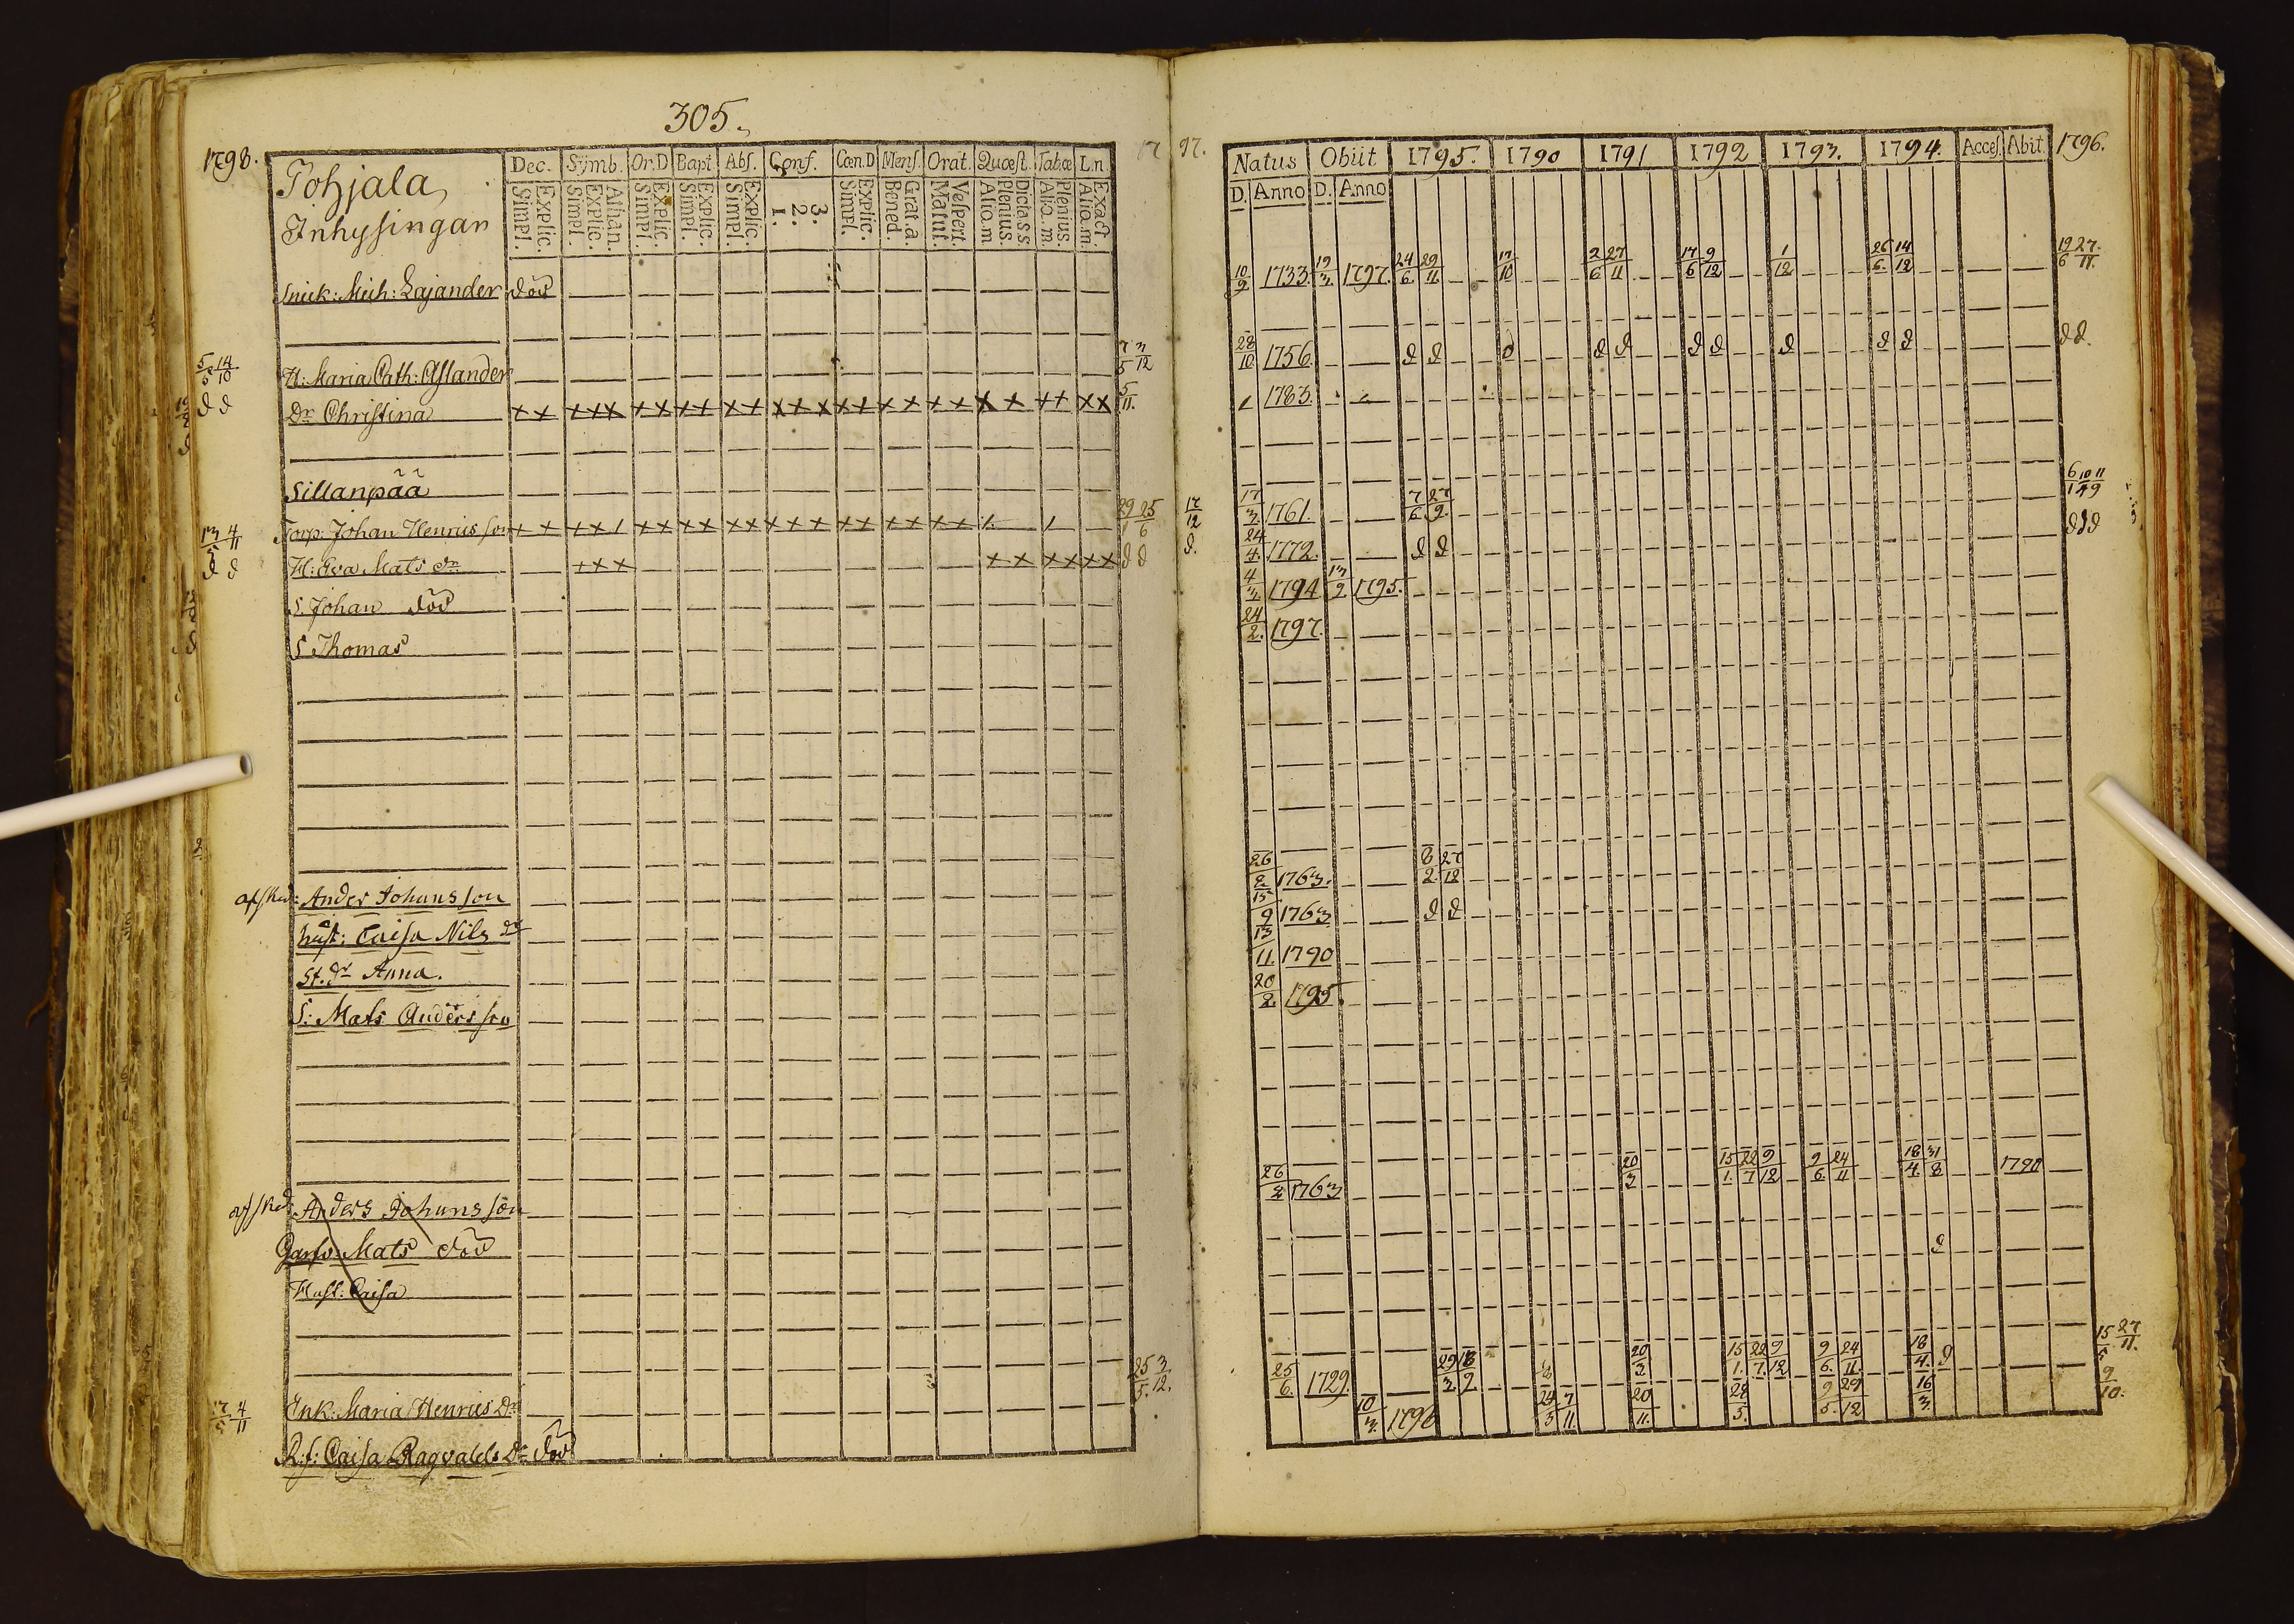 305.
1798.
Pohjala
Inhysingar
Dec. Symb. Or.D Bapt. Abs. Conf. Cœn.D Mens. Orat. Quæst. Tab.æ L.n.
Explic. Simpl. Athan. Explic. Simpl. Explic. Simpl. Explic. Simpl. Explic. Simpl. 3. 2. 1. Explic. Simpl. Grat.a. Bened. Vespert. Matut. Dicta.s.s. Plenius. Alio.m. Plenius. Alio.m. Exact. Alio.m.
Snick: Mich: Lajander död
5/5 14/10 H: Maria Cath: Aslander 7/5 3/12
d d Dr Christina ×× ××× ×× ×× ×× ××× ×× ×× ×× ×× ×× ×× 5/11.
Sillanpää
13/5 4/11 Torp: Johan Henrics son ×× ××/ ×× ×× ×× ××× ×× ×× ×× / / 29/1 25/6
d d H: Eva Mats dr ××× ×× ×× ×× d d
S. Johan död
S Thomas
afsked: Ander Johansson
hust: Caisa Nils dr
st. dr Anna.
S: Mats Andersson
afsked: Anders Johansson
Mats död
Hust: Caisa
17/5 4/11 Enk: Maria Henrics Dr 25/5. 3/12.
R:f: Caisa Ragvalds Dr död
1797.
Natus Obiit 1795. 1790 1791 1792 1793. 1794. Acces. Abit. 1796.
D. Anno D. Anno
10/9 1733. 19/3 1797. 24/6. 29/11. 17/10 2/6 27/11 17/6 9/12 1/12 26/6. 14/12 19/6 27/11.
28/10 1756. d d d d d d d d d d d d.
1783.
17/12 17/3. 1761. 7/6 27/9. 6/1 10/4 11/9
d. 24/4. 1772. d d d d d
4/3. 1794 13/9 1795.
24/2. 1797.
26/2 1763. 8/2. 27/12
15/9 1763 d d
13/11. 1790
20/2. 1795.
26/2 1763 20/3 15/1. 22/7 9/12 9/6. 24/11 18/4 31/8 1790
d
25/6. 1729. 29/3. 18/9 20/3. 15/1. 22/7. 9/12 9/6. 24/11. 18/4. d 15/5 27/11.
10/3. 1796 24/3 7/11. 20/11. 28/5. 9/5. 29/12 16/3. 9/10.